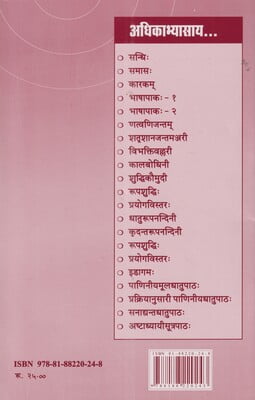 अधिकाभ्यासाय...
सन्धिः
समासः
कारकम्
भाषापाकः - १
भाषापाकः - २
णत्वणिजन्तम्
शतृशानजन्तमञ्जरी
विभक्तिवल्लरी
कालबोधिनी
शुद्धिकौमुदी
रूपशुद्धिः
प्रयोगविस्तरः
धातुरूपनन्दिनी
कृदन्तरूपनन्दिनी
रूपशुद्धिः
प्रयोगविस्तरः
इडागमः
पाणिनीयमूलधातुपाठः
प्रक्रियानुसारी पाणिनीयधातुपाठः
सनाद्यन्तधातुपाठः
अष्टाध्यायीसूत्रपाठः
ISBN 978-81-88220-24-8
रू. २५-००
9 788188 220243